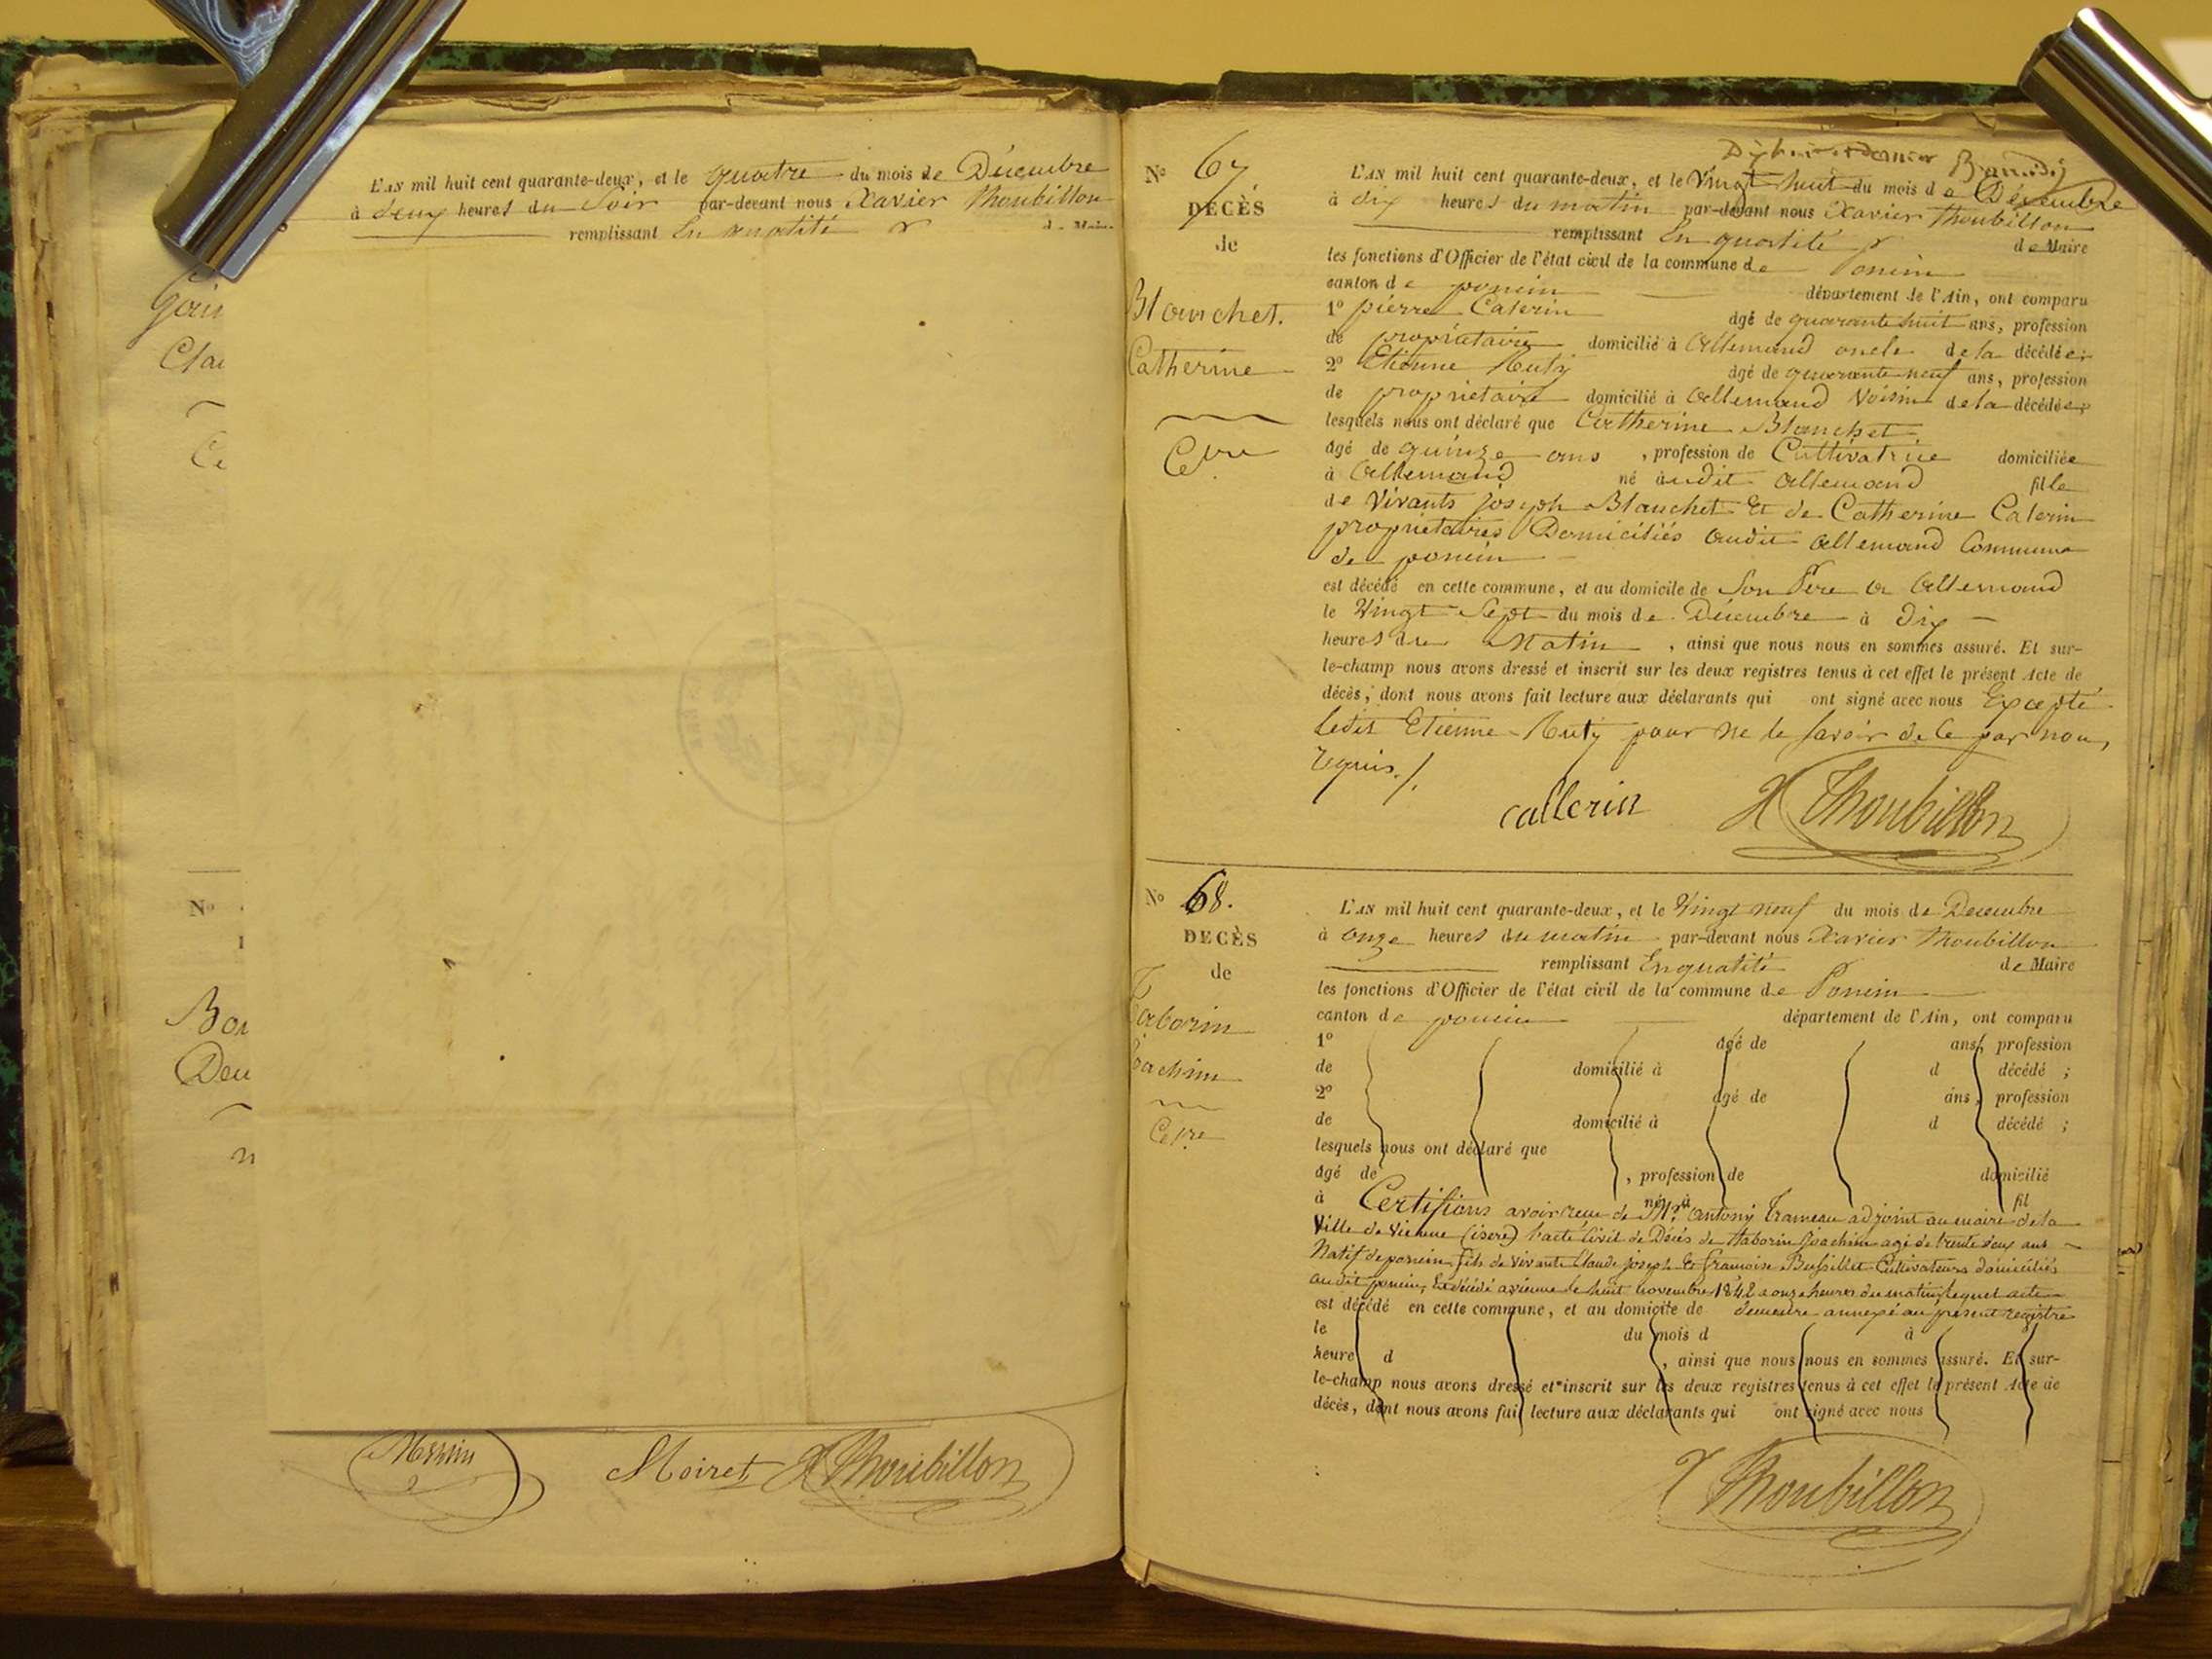 L'AN mil huit cent quarante-deux, et le quatre du mois de Décembre
à deux heures du Soir par-devant nous Xavier Thoubillon
remplissant En quatité
Clau
Ce
No
Bou
Deu
Messin Moiret X Thoubillon
No 67
DECÈS
de
Blanchet.
Catherine
Celre
L'AN mil huit cent quarante-deux, et le Vingt huit du mois de Décembre
à dix heures du matin par-devant nous Xavier Thoubillon
remplissant En quatité de Maire
les fonctions d'Officier de l'état civil de la commune de Poncin
canton de poncin département de l'Ain, ont comparu
1o pierre Caterin âgé de quarante huit ans, profession
de propriétaire domicilié à Allemand oncle de la décédée;
2o Etienne Muty âgé de quarante neuf ans, profession
de propriétaire domicilié à Allemand Voisin de la décédée;
lesquels nous ont déclaré que Catherine Blanchet
âgé de quinze ans, profession de Cultivatrice domiciliée
à Allemand né audit Allemand fille
de Vivants joseph Blanchet Et de Catherine Caterin
propriétaires Domiciliés audit Allemand Commune
de poncin
est décédé en cette commune, et au domicile de Son Père a Allemand
le Vingt Sept du mois de Décembre à dix
heures du Matin, ainsi que nous nous en sommes assuré. Et sur-
le-champ nous avons dressé et inscrit sur les deux registres tenus à cet effet le présent Acte de
décès, dont nous avons fait lecture aux déclarants qui ont signé avec nous Excepté
ledit Etienne Muty pour ne le savoir de ce par nous
requis./.
callerin X Thoubillon
No 68.
DECÈS
de
Taborin
Joachim
Celre
L'AN mil huit cent quarante-deux, et le Vingt neuf du mois de Decembre
à onze heures du matin par-devant nous Xavier Thoubillon
remplissant En quatité de Maire
les fonctions d'Officier de l'état civil de la commune de Poncin
canton de poncin département de l'Ain, ont comparu
1o âgé de ans, profession
de domicilié à d décédé ;
2o âgé de ans, profession
de domicilié à d décédé ;
lesquels nous ont déclaré que
âgé de , profession de domicilié
à né à fil
Certifions avoir reçu de Mr. antony Trameau adjoint au maire de la
Ville de Vienne (isère) l'acte Civil de Décès de Taborin Joachim agé de trente deux ans
Natif de poncin fils de vivants Claude joseph Et françoise Bussillet Cultivateurs domiciliés
audit poncin, Et décédé a vienne le huit novembre 1842 a onze heures du matin, lequel acte
est décédé en cette commune, et au domicile de demeure annexé au présent registre
le du mois d à
heure d , ainsi que nous nous en sommes assuré. Et sur-
le-champ nous avons dressé et inscrit sur les deux registres tenus à cet effet le présent Acte de
décès, dont nous avons fait lecture aux déclarants qui ont signé avec nous
X Thoubillon